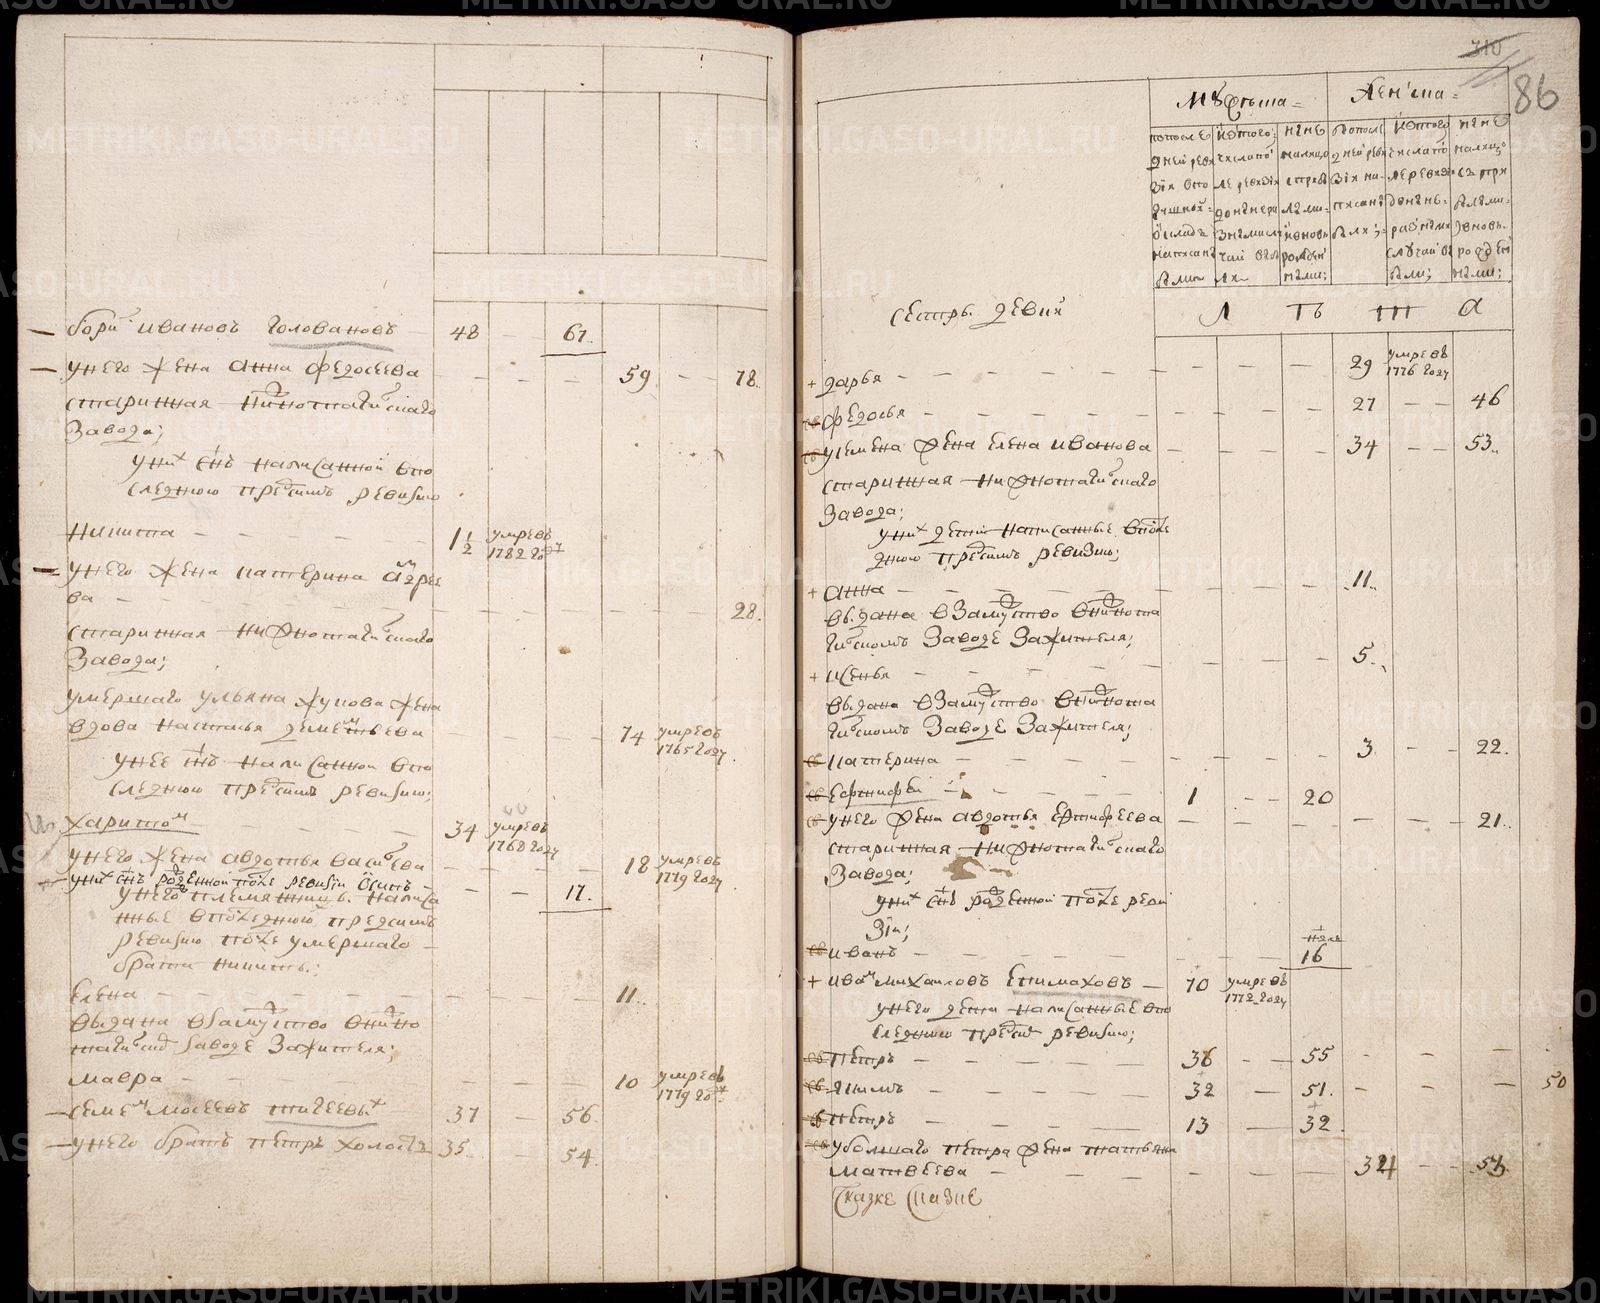 борисъ ивановъ головановъ 48 — 67
у него жена анна федосеева 59 — 78
старинная нижнотагилскаго
завода;
у них сынъ написанной в по
следнюю пред симъ ревизию
никита 1½ умре въ 1782 году
у него жена катерина андрее
ва 28
старинная нижнотагилскаго
завода;
умершаго ульяна жукова жена
вдова насталья дементьева 74 умре въ 1765 году
у нее сынъ написанной в по
следнюю пред симъ ревизию;
харитон 34 умре въ 1768 году
у него жена авдотья васильева 18 умре въ 1779 году
у них сынъ рожденной после ревизии осипъ 17
у него племянницы написа
нные в последнюю пред симъ
ревизию после умершаго
брата никиты:
елена 11
выдана в замужство в нижно
тагилскомъ заводе за жителя;
мавра 10 умре въ 1779 году
семен мосеевъ тигеевых 37 — 56
у него братъ петръ холостъ 35 — 54
310
86
мужеска женска
по последней ревизии в подушной окладъ написаны были
из того числа по ле ревизии до ныне разными случаи выбыли
ныне на лицо с прибылыми и вновь рожденными;
по последней ревизии написаны были;
из того числа по ле ревизии до ныне разными случаи выбыли;
ныне на лицо с прибылыми и вновь рожденными;
сестры девки
Л Ѣ Т А
+ дарья 29 умре въ 1776 году
федосья 27 — 46
у семена жена елена иванова 34 — 53
старинная нижнотагилскаго
завода;
у них дети написанные в после
днюю пред симъ ревизию;
+ анна 11
выдана в замужство в нижнота
гилскомъ заводе за жителя;
+ ксенья 5
выдана в замужство в нижнота
гилскомъ заводе за жителя;
катерина 3 — 22
ефтифей 1 — 20
у него жена авдотья ефтифеева 21
старинная нижнотагилскаго
завода;
у них сынъ рожденной после реви
зии;
иванъ 16 нед
+ иван михаиловъ епимаховъ 70 умре въ 1772 году
у него дети написанные в по
следнюю пред симъ ревизию;
петръ 36 — 55
якимъ 32 — 51 50
петръ 13 — 32
у большаго петра жена татьяна
матвеева 34